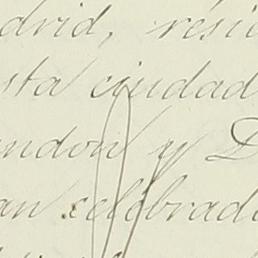 drid, resid
sta ciudad
ndon y D
an celebrado